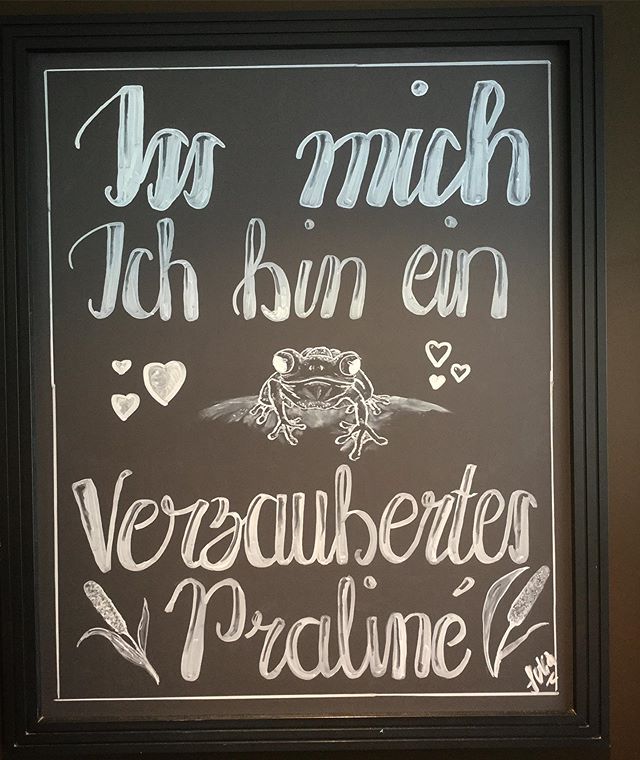 Iss mich
Ich bin ein
Verzaubertes
Praliné